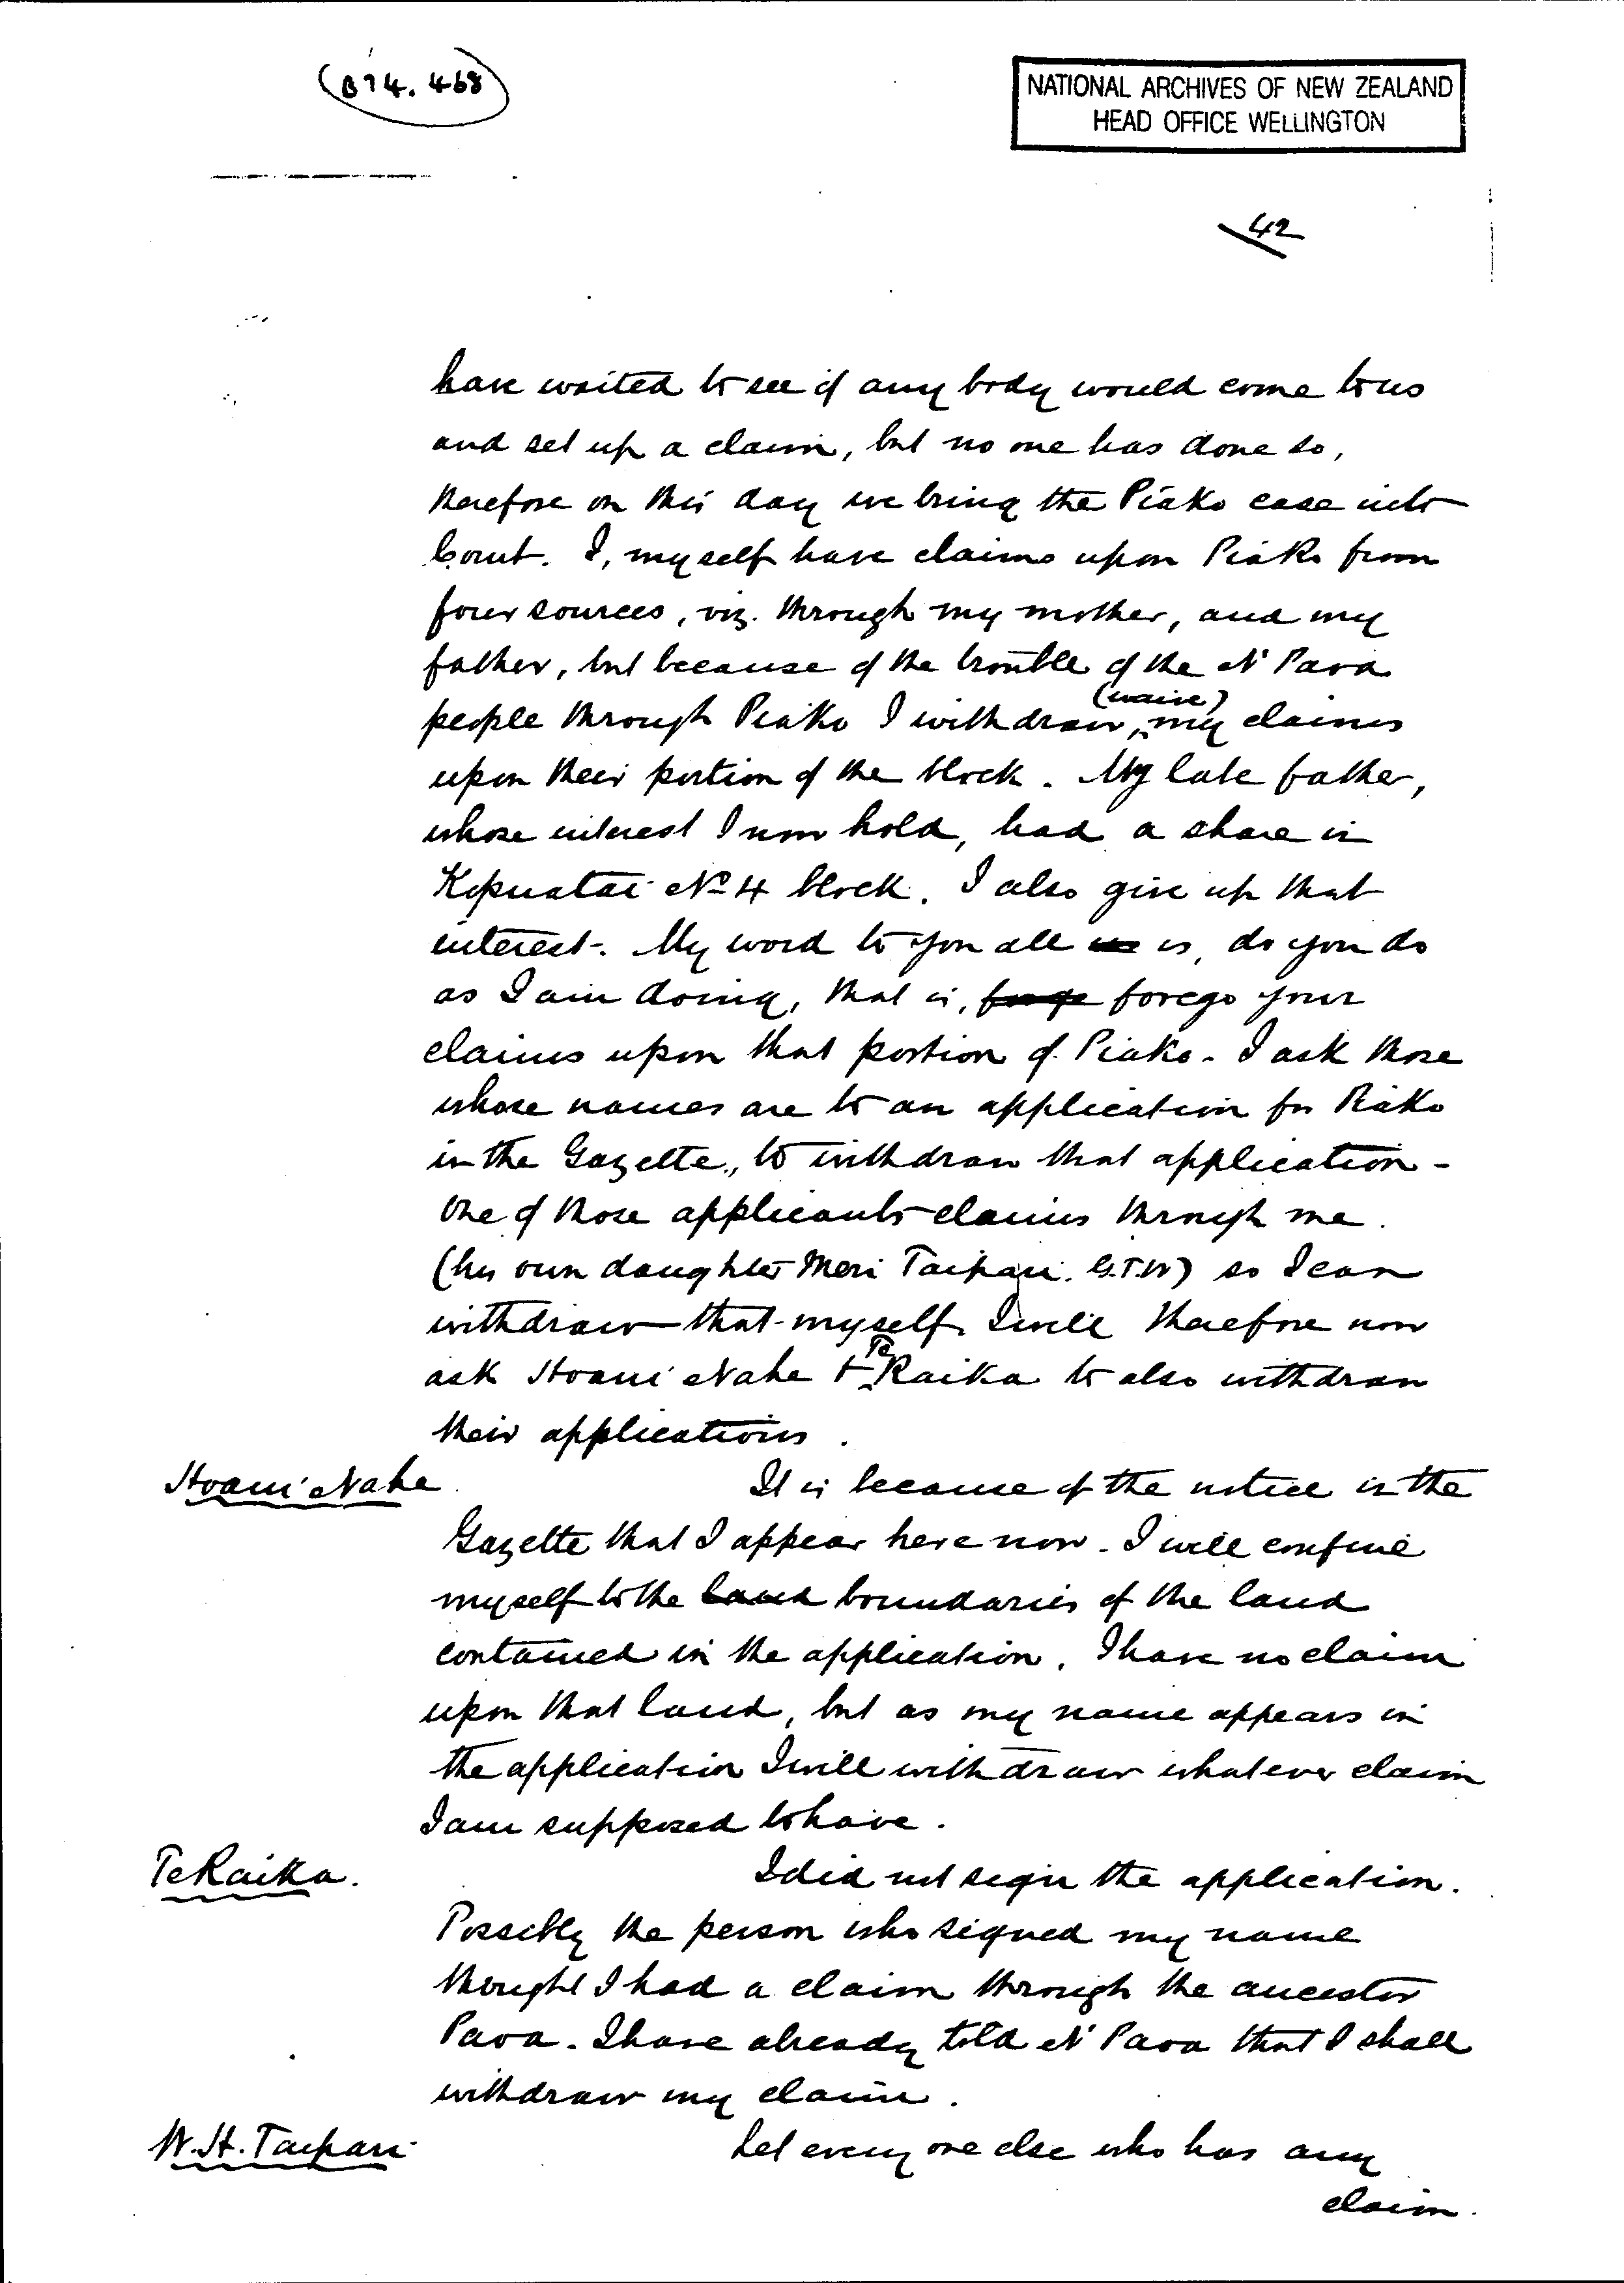 (B74. 468)
NATIONAL ARCHIVES OF NEW ZEALAND
HEAD OFFICE WELLINGTON
42
have waited to see if any body would come to us
and set up a claim, but no one has done so,
therefore on this day we bring the Piako case into
Court. I, myself have claims upon Piako from
four sources, viz. through my mother, and my
father, but because of the trouble of the N' Paoa
people through Piako I withdraw, (waive) my claims
upon their portion of the block. My late father,
whose interest I now hold, had a share in
Kopuatai No 4 block. I also give up that
interest. My word to you all is, do you do
as I am doing, that is, forego your
claims upon that portion of Piako. I ask those
whose names are to an application for Piako
in the Gazette, to withdraw that application.
One of those applicants claims through me.
(his own daughter Meri Taipari. G.T.W) so I can
withdraw that myself. I will therefore now
ask Hoani Nahe + Te Raika to also withdraw
their applications.
Hoani Nahe. It is because of the notice in the
Gazette that I appear here now. I will confine
myself to the land boundaries of the land
contained in the application. I have no claim
upon that land, but as my name appears in
the application I will withdraw whatever claim
I am supposed to have.
Te Raika. I did not sign the application.
Possibly the person who signed my name
thought I had a claim through the ancestor
Paoa. I have already told N' Paoa that I shall
withdraw my claim.
W. H. Taipari. Let every one else who has any
claim.